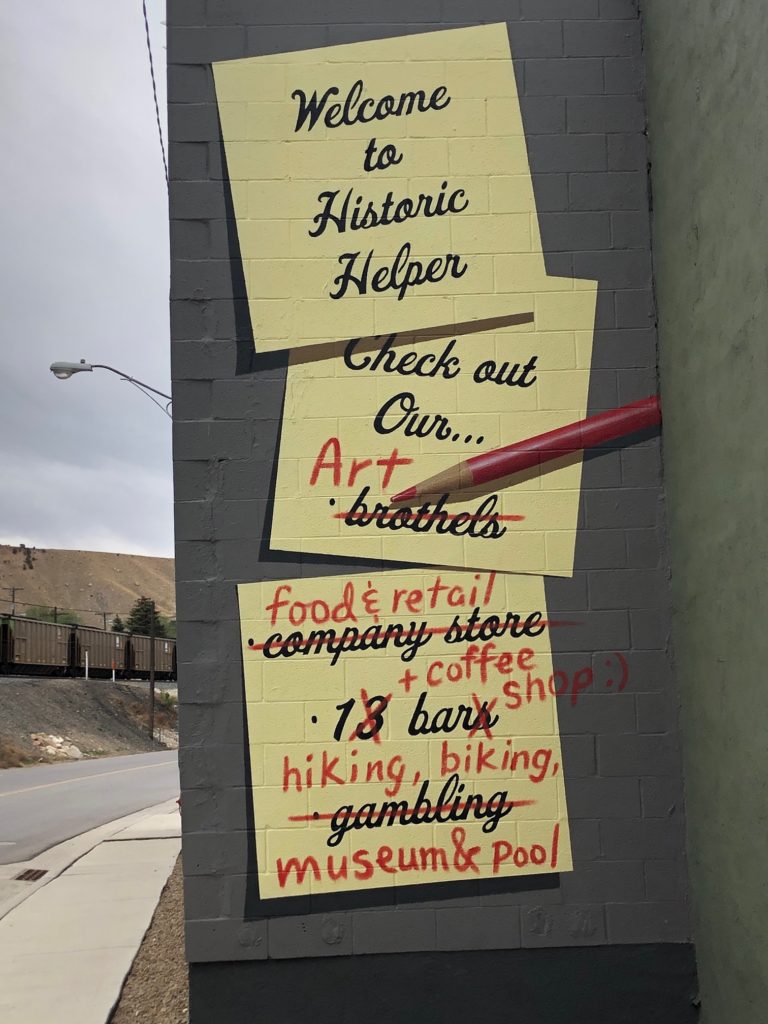 Welcome
to
Historic
Helper
Check out
Our...
Art
· brothels
food & retail
· company store
+ coffee
shop :)
· 13 bars
hiking, biking,
· gambling
museum & pool